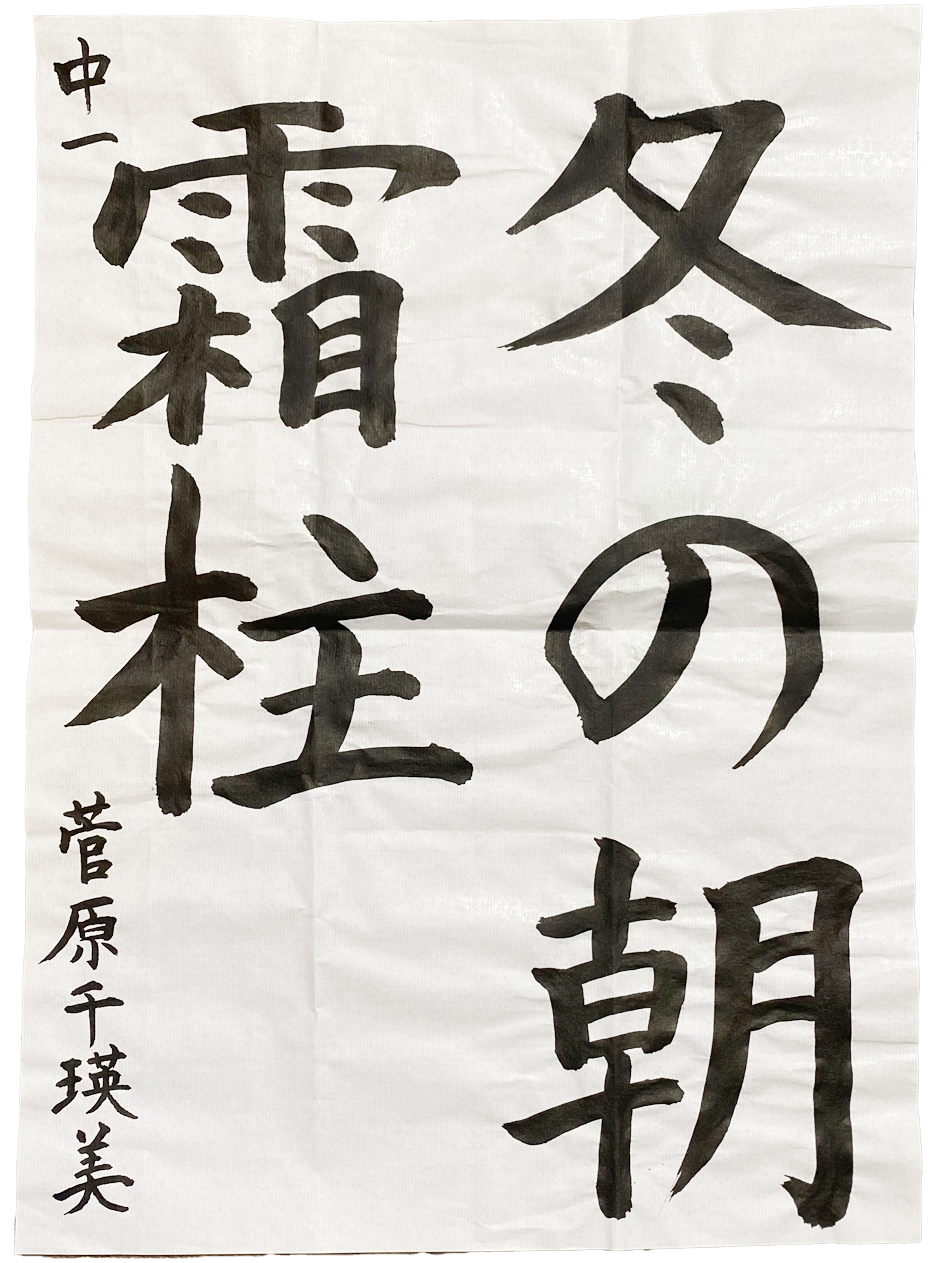 冬の朝
霜柱
中一 菅原千瑛美